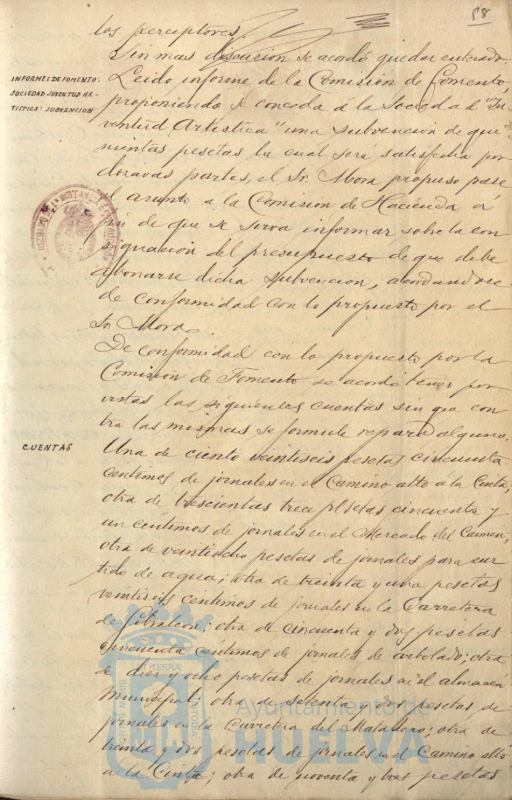 58
los perceptores.
Sin mas discusion se acordó quedar enterado.
INFORMES DE FOMENTO:
SOCIEDAD JUVENTUD AR-
TISTICA: SUBVENCION
Leido informe de la Comision de Fomento,
proponiendo se conceda á la Sociedad "Ju-
ventud Artistica" una subvencion de qui-
nientas pesetas la cual será satisfecha por
dozavas partes, el Sr. Mora propuso pase
el asunto a la Comision de Hacienda á
fin de que se sirva informar sobre la con-
signacion del presupuesto de que debe
abonarse dicha subvencion, acordandose
de conformidad con lo propuesto por el
Sr. Mora.
De conformidad con lo propuesto por la
Comision de Fomento se acordó tener por
vistas las siguientes cuentas sin que con
tra las mismas se formule reparo alguno.
CUENTAS
Una de ciento veintiseis pesetas cincuenta
centimos de jornales en el Camino alto a la Cinta;
otra de trescientas trece pesetas cincuenta y
un centimos de jornales en el Mercado del Carmen;
otra de veintiocho pesetas de jornales para sur
tido de agua; otra de treinta y una pesetas
veintiseis centimos de jornales en la Carretera
de Gibraleon; otra de cincuenta y dos pesetas
cincuenta centimos de jornales de arbolado; otra
de diez y ocho pesetas de jornales en el almacen
Municipal; otra de setenta y dos pesetas de
jornales en la Carretera del Matadero; otra de
treinta y dos pesetas de jornales en el Camino alto
a la Cinta; otra de noventa y tres pesetas
Ayuntamiento de
HUELVA